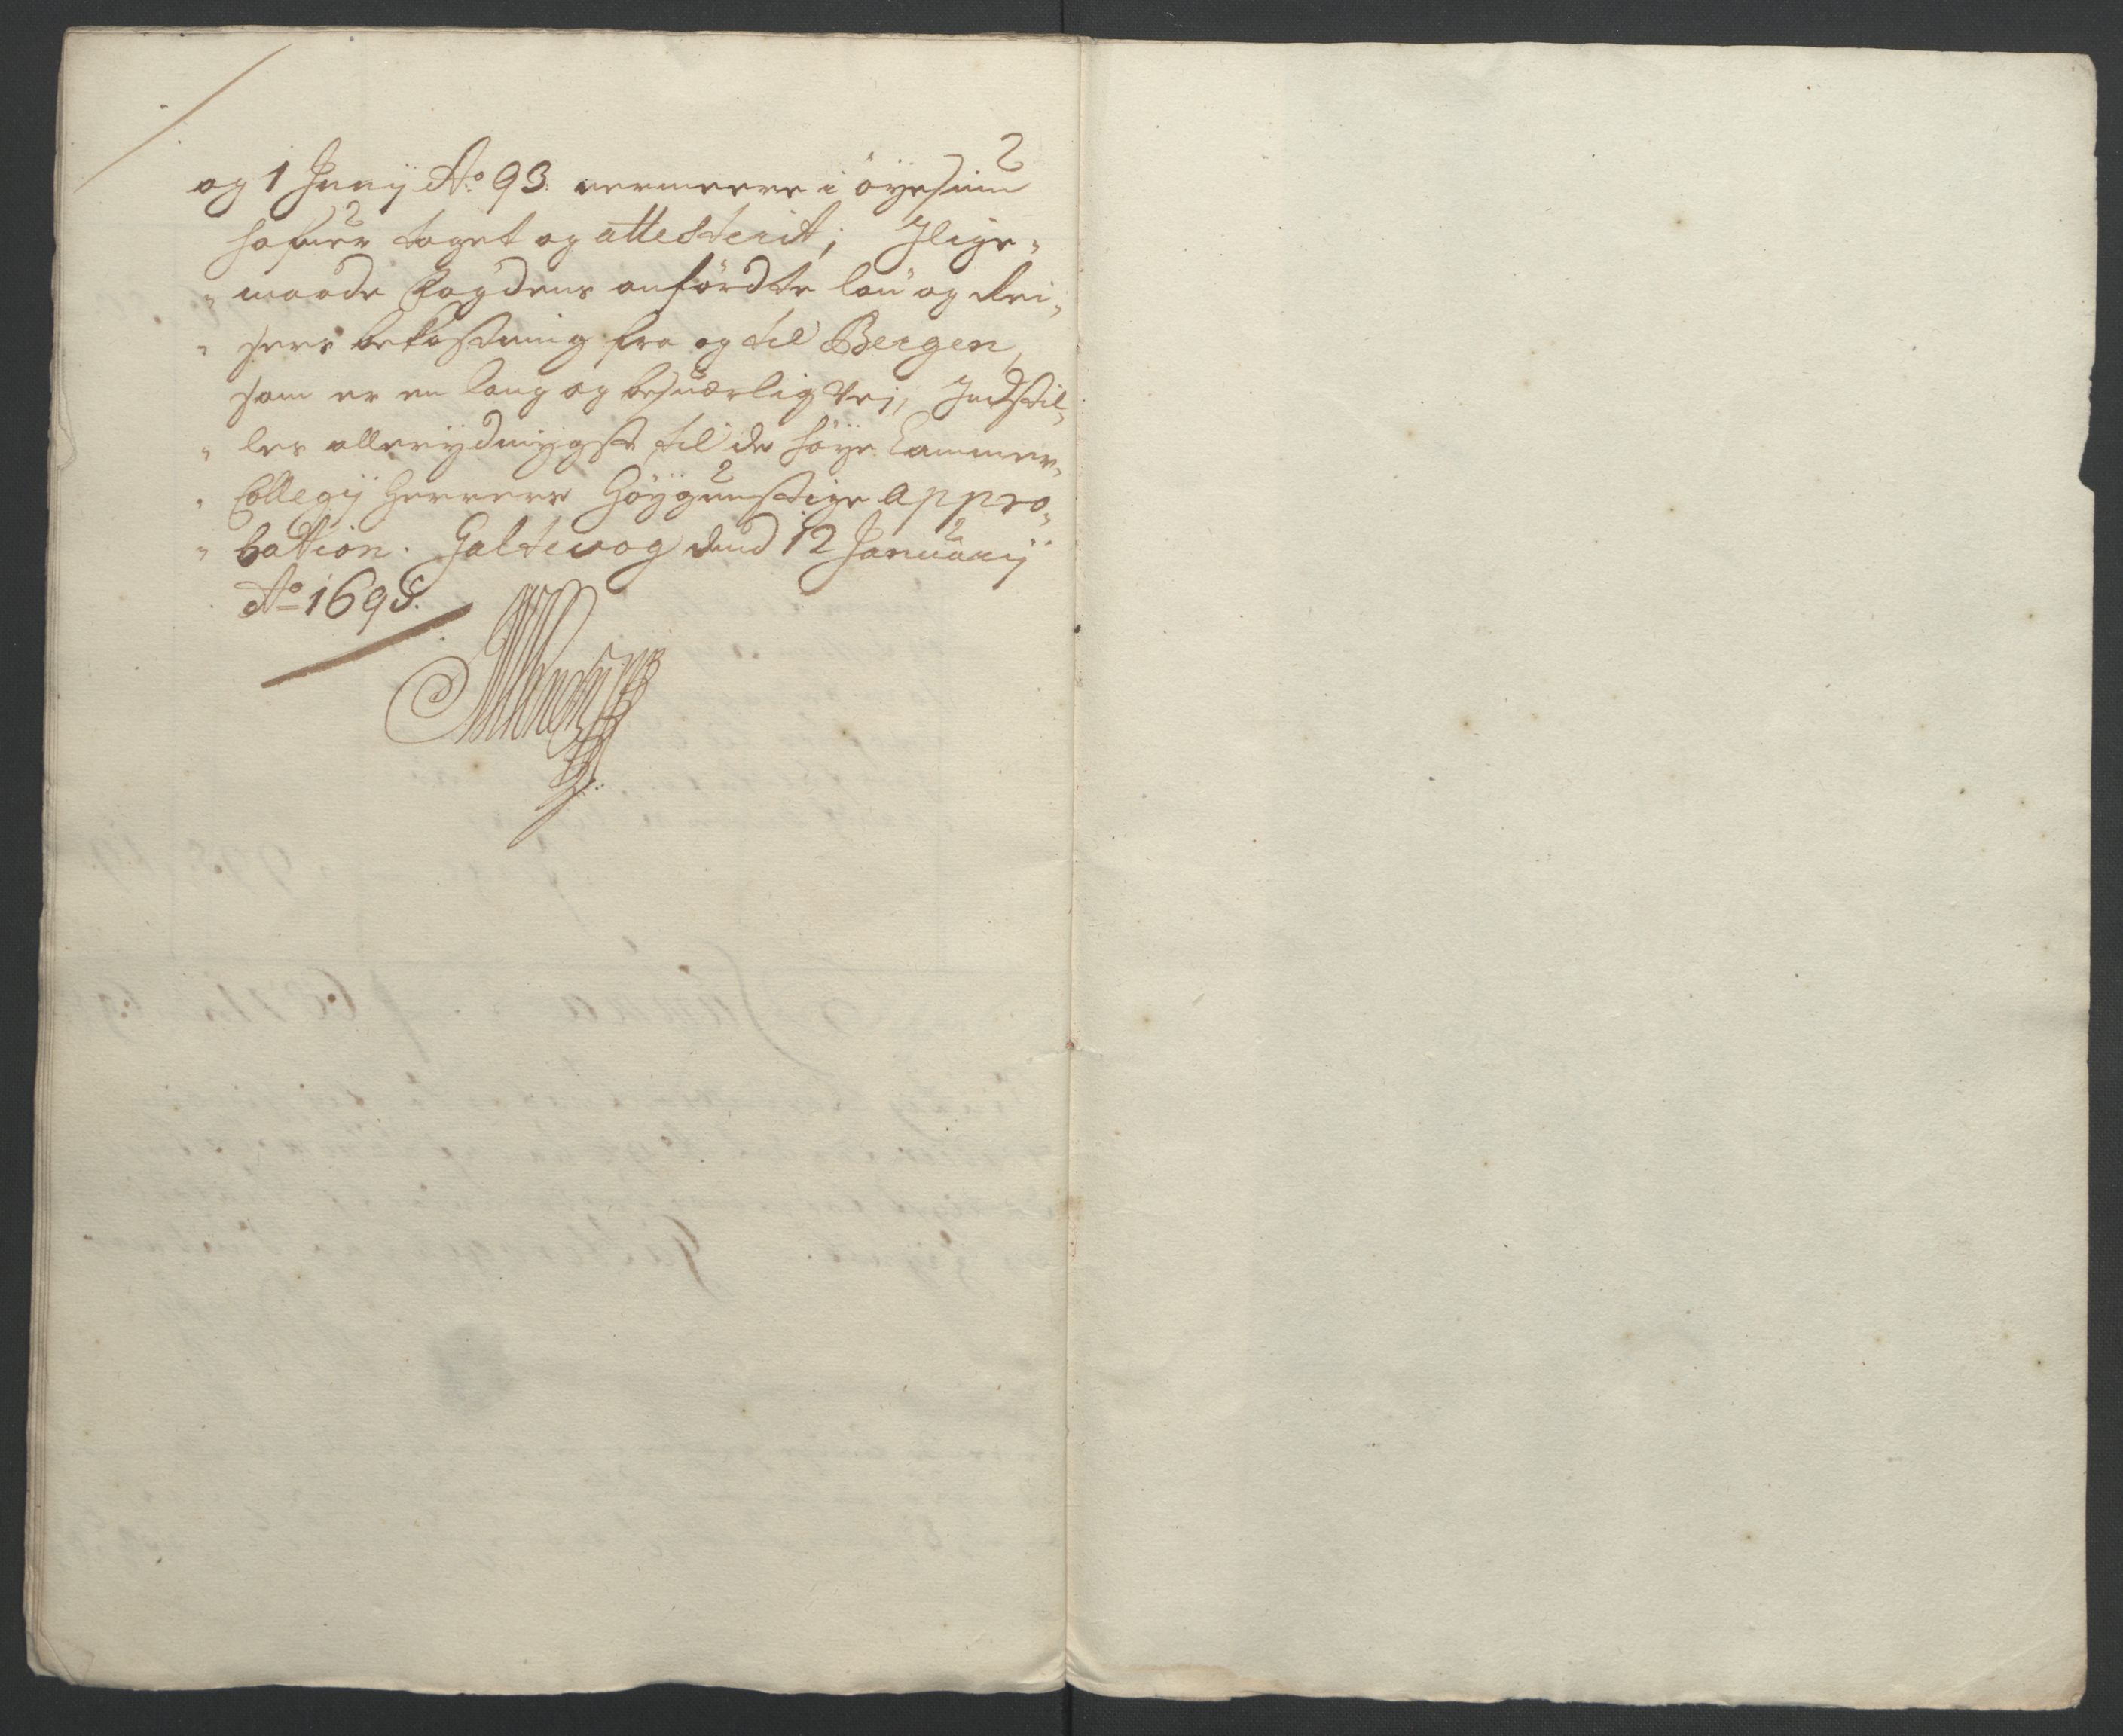 og 1 Junij Ao 93. nermeere i öyesiun
hafuer taget og attesterit; Jlige-
maade Fogdens anfördte lön og Rei-
sers bekostning fra og til Bergen,
som er en lang og besuærlig Vej, Indstil-
les allerydmygst til de höye Cammer-
Collegij Herrers Höygunstige appro-
bation. Galtevog dend 12 Januarij
Ao 1695.